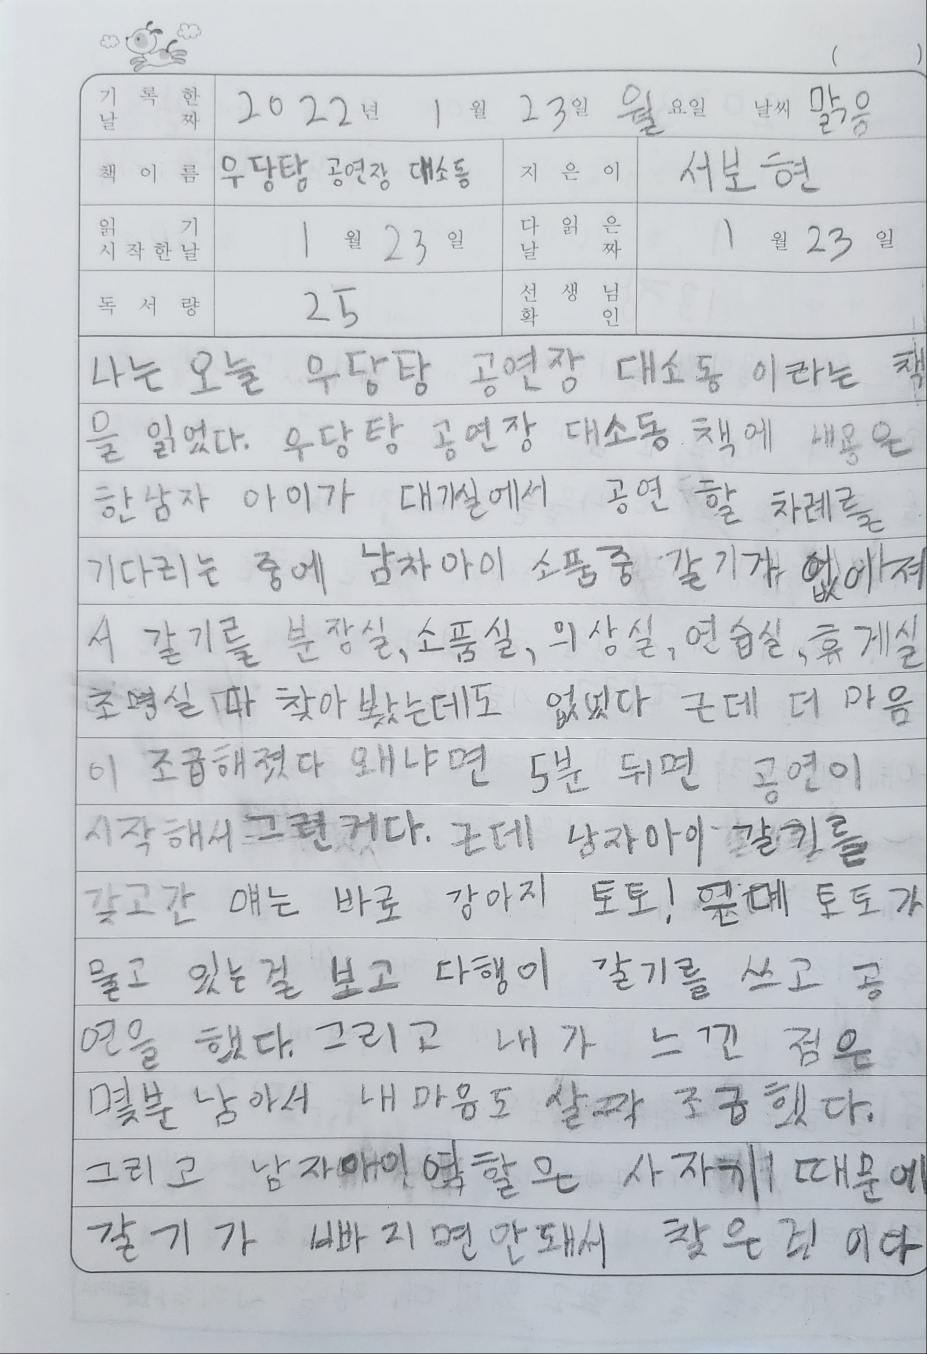 ( )
기 록 한 날 짜 2022년 1월 23일 월요일 날씨 맑음
책 이 름 우당탕 공연장 대소동 지 은 이 서보현
읽 기 시작한날 1월 23일 다 읽 은 날 짜 1월 23일
독 서 량 25 선 생 님 확 인
나는 오늘 우당탕 공연장 대소동 이라는 책
을 읽었다. 우당탕 공연장 대소동 책에 내용은
한남자 아이가 대기실에서 공연 할 차례를
기다리는 중에 남자아이 소품중 갈기가 없어져
서 갈기를 분장실, 소품실, 의상실, 연습실, 휴게실
조명실 따 찾아 봤는데도 없었다 근데 더 마음
이 조급해졌다 왜냐면 5분 뒤면 공연이
시작해서 그런거다. 근데 남자아이 갈기를
갖고간 얘는 바로 강아지 토토! 토토가
물고 있는걸 보고 다행이 갈기를 쓰고 공
연을 했다. 그리고 내가 느낀 점은
몇분 남아서 내마음도 살짝 조급했다.
그리고 남자애인 역할은 사자기 때문에
갈기가 빠지면 안돼서 찾은 이다